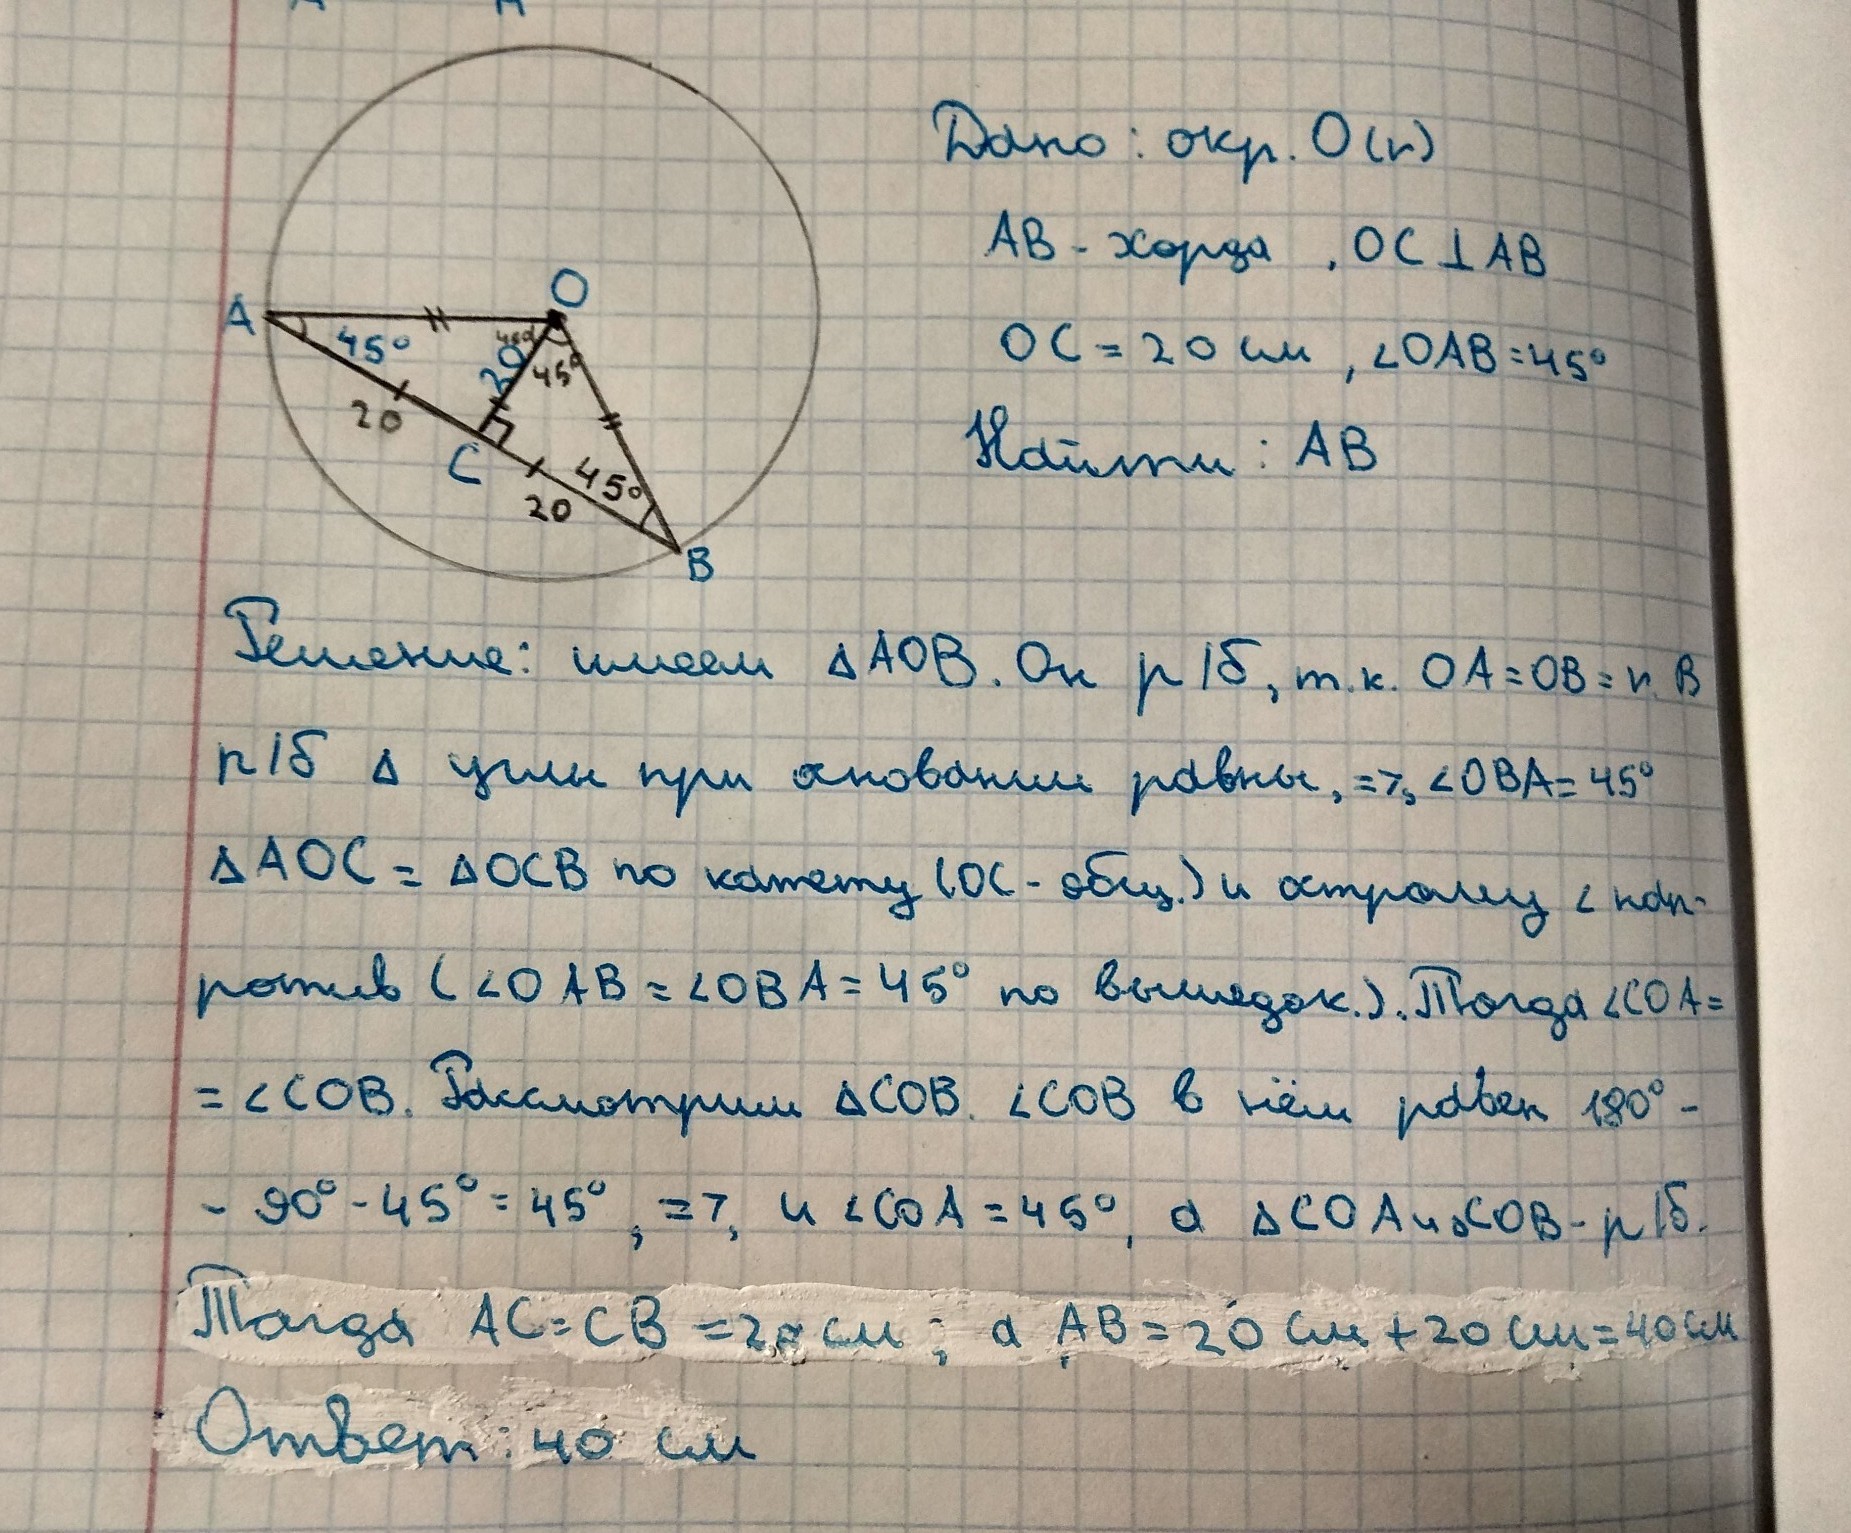 O
A
45°
45°
20
45°
20
C
45°
20
B
Дано: окр. O(r)
AB - хорда , OC ⊥ AB
OC = 20 см , ∠OAB = 45°
Найти : AB
Решение: имеем ΔAOB. Он р/б, т.к. OA = OB = r. В
р/б Δ углы при основании равны, =>, ∠OBA = 45°
ΔAOC = ΔOCB по катету (OC - общ.) и острому ∠ нап-
ротив (∠OAB = ∠OBA = 45° по вышедок.). Тогда ∠COA =
= ∠COB. Рассмотрим ΔCOB. ∠COB в нём равен 180° -
- 90° - 45° = 45°, =>, и ∠COA = 45°, а ΔCOA и ΔCOB - р/б.
Тогда AC = CB = 20 см ; а AB = 20 см + 20 см = 40 см
Ответ : 40 см